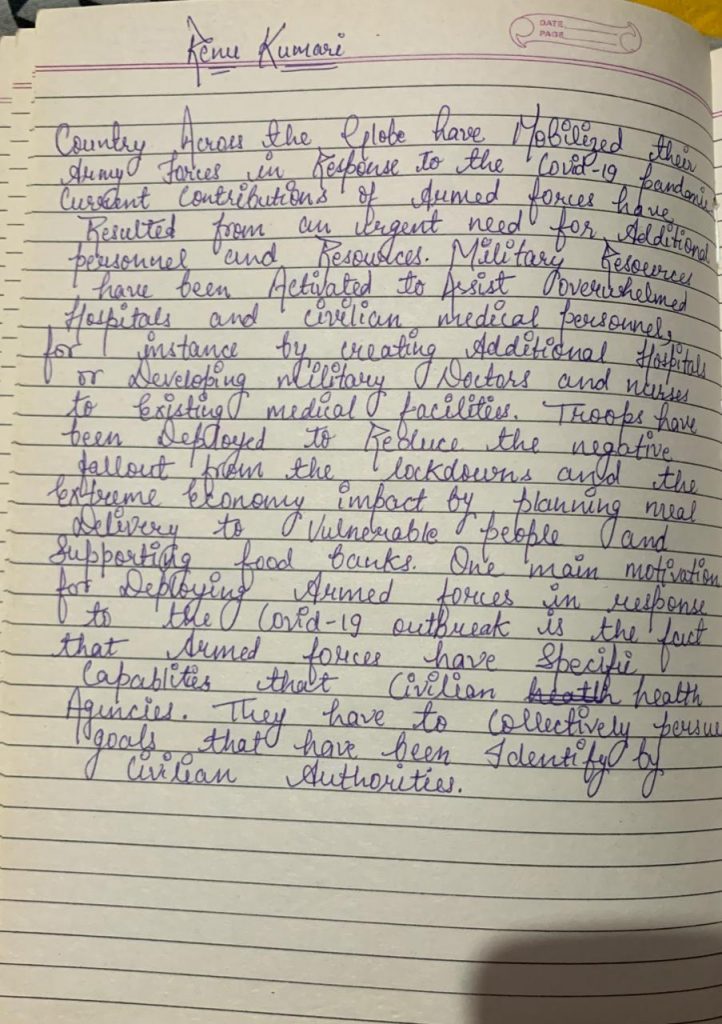 DATE
PAGE
Renu Kumari
Country Across the Globe have Mobilized their
Army Forces in Response to the Covid-19 pandemic
Current contributions of Armed forces have
Resulted from an urgent need for Additional
personnel and Resources. Military Resources
have been Activated to Assist Overwhelmed
Hospitals and civilian medical personnel,
for instance by creating Additional Hospitals
or Developing military Doctors and nurses
to Existing medical facilities. Troops have
been Deployed to Reduce the negative
fallout from the lockdowns and the
Extreme Economy impact by planning meal
Delivery to Vulnerable people and
Supporting food banks. One main motivation
for Deploying Armed forces in response
to the Covid-19 outbreak is the fact
that Armed forces have Specific
Capablites that Civilian health
Agencies. They have to collectively persue
goals that have been Identify by
Civilian Authorities.